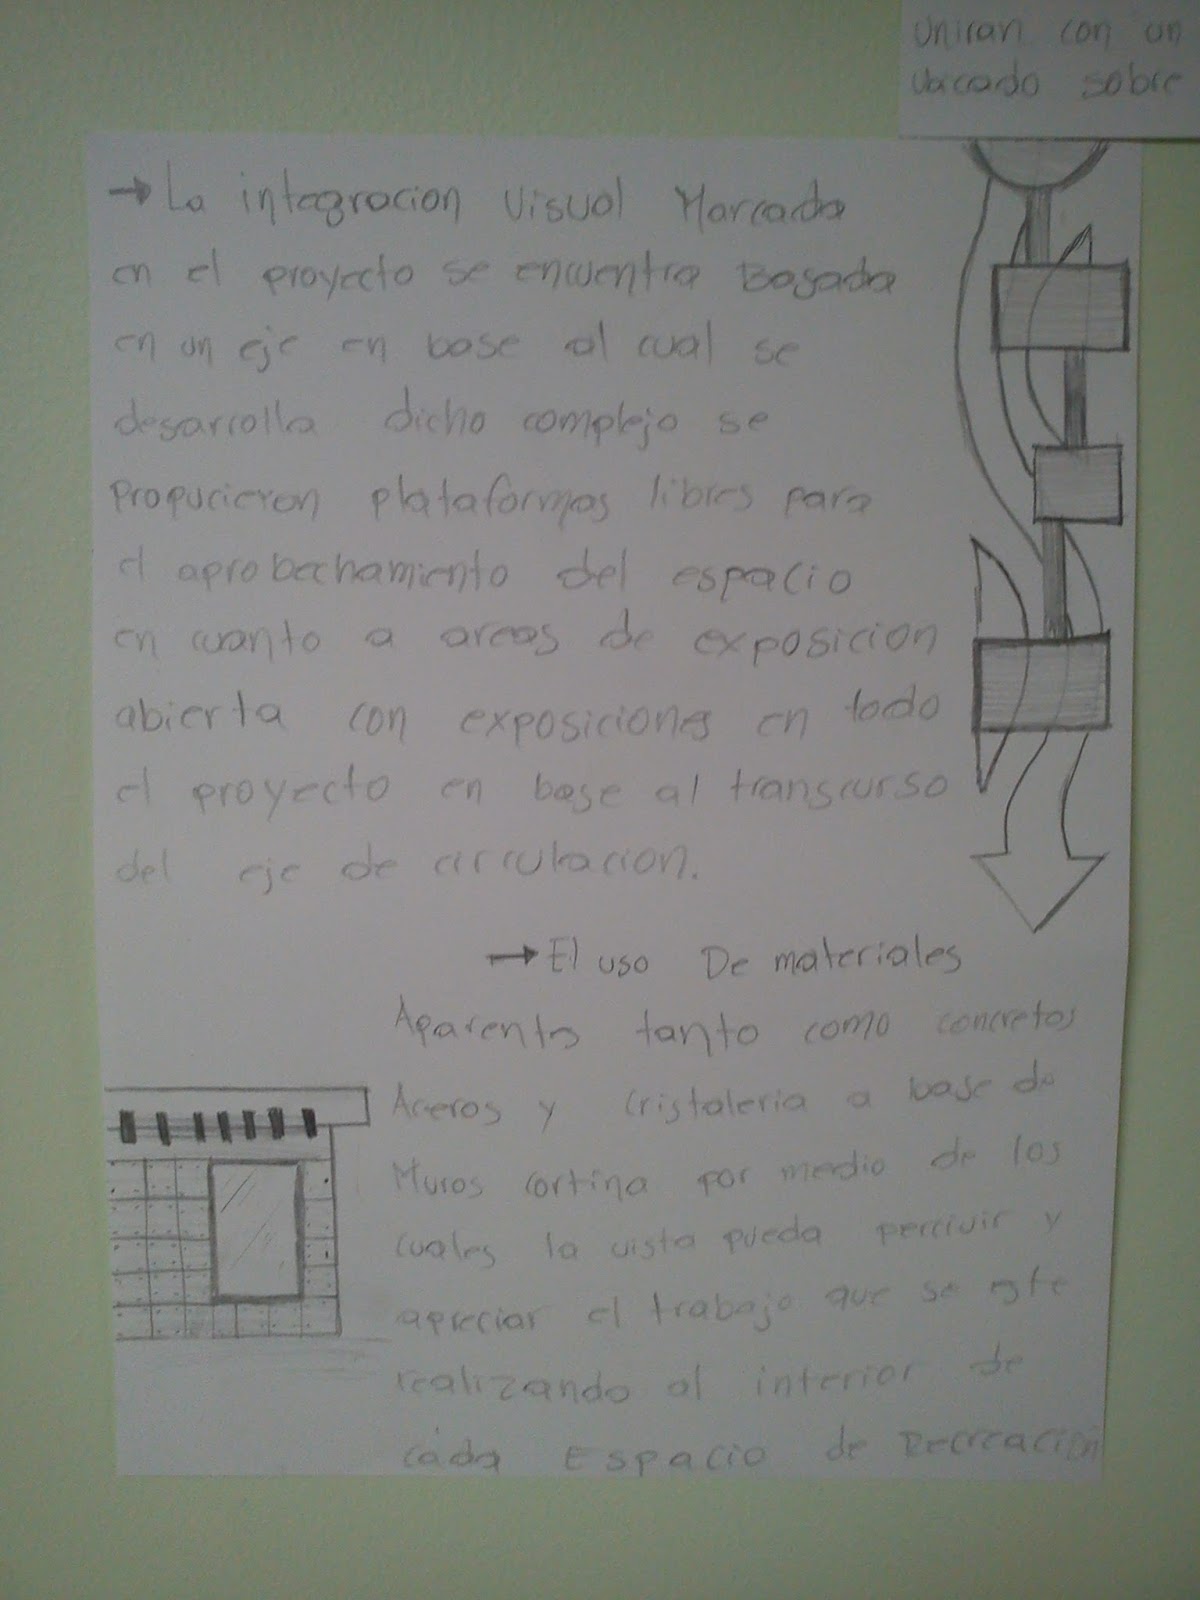 Uniran con un
Ubicado sobre
→ La integracion Visual Marcada
en el proyecto se encuentra Basada
en un eje en base al cual se
desarrolla dicho complejo se
Propucieron plataformas libres para
el aprobechamiento del espacio
en cuanto a areas de exposicion
abierta con exposiciones en todo
el proyecto en base al transcurso
del eje de circulacion.
→ El uso De materiales
Aparents tanto como concretos
Aceros y cristaleria a base de
Muros cortina por medio de los
cuales la vista pueda percivir y
apreciar el trabajo que se este
realizando al interior de
cada Espacio de Recreación